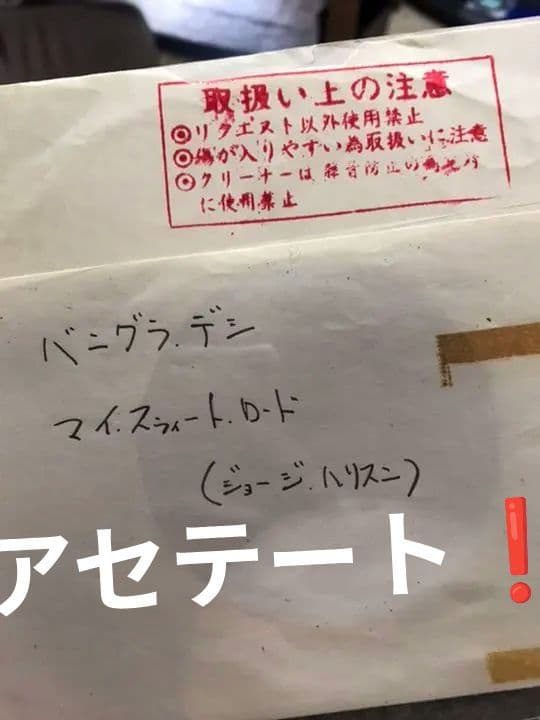 取扱い上の注意
◎リクエスト以外使用禁止
◎傷が入りやすい為取扱いに注意
◎クリーナーは雑音防止の為絶対
に使用禁止
バニグラ.デシ
マイ.スウィート.ロード
(ジョージ.ハリスン)
アセテート❗